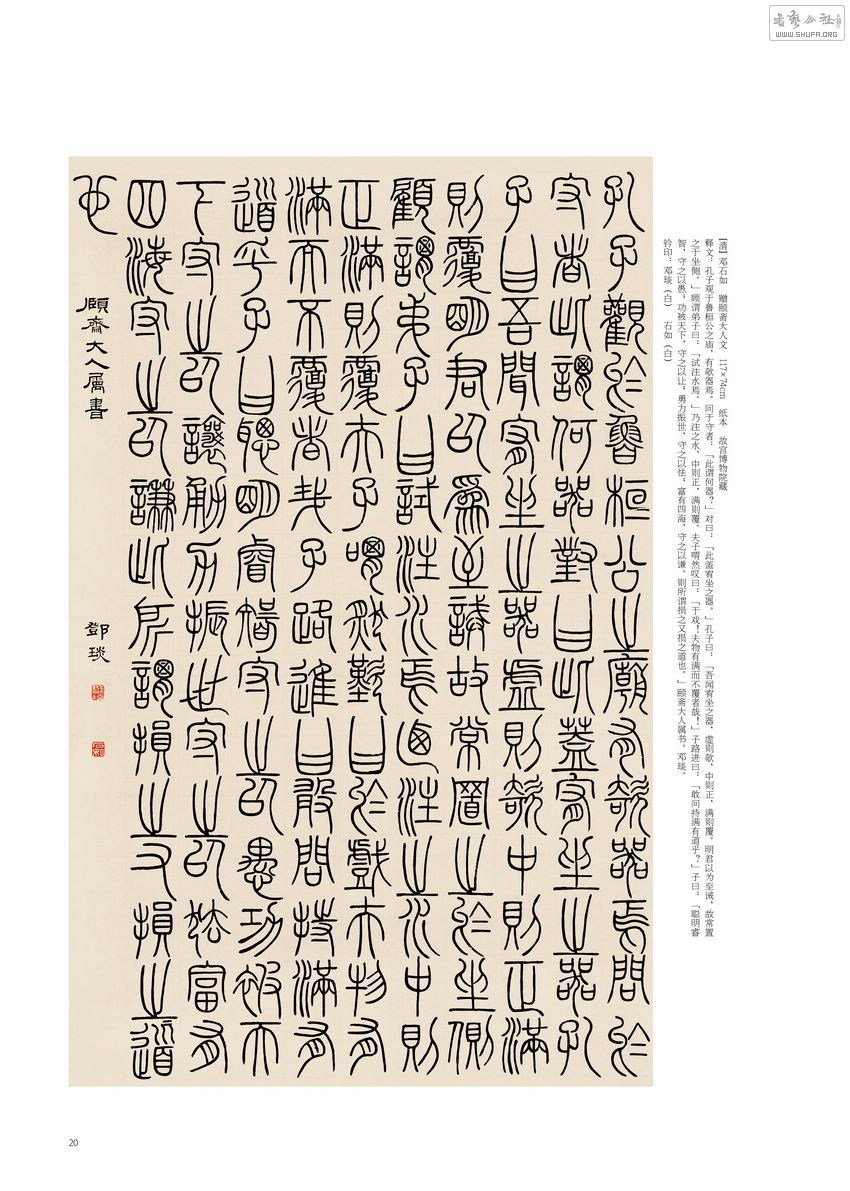 书艺公社
WWW.SHUFA.ORG
[清] 邓石如 赠颐斋大人文 117×74cm 纸本 故宫博物院藏
释文：孔子观于鲁桓公之庙，有欹器焉。问于守者：「此谓何器？」对曰：「此盖宥坐之器。」孔子曰：「吾闻宥坐之器，虚则欹，中则正，满则覆。明君以为至诫，故常置
之于坐侧。」顾谓弟子曰：「试注水焉。」乃注之水，中则正，满则覆。夫子喟然叹曰：「于戏！夫物有满而不覆者哉！」子路进曰：「敢问持满有道乎？」子曰：「聪明睿
智，守之以愚。功被天下，守之以让，勇力振世，守之以怯，富有四海，守之以谦。则所谓损之又损之道也。」颐斋大人属书。邓琰。
钤印：邓琰（白） 石如（白）
孔子觀於魯桓公之廟有欹器焉問於
守者此謂何器對曰此蓋宥坐之器孔
子曰吾聞宥坐之器虛則欹中則正滿
則覆明君以為至誡故常置之於坐側
顧謂弟子曰試注水焉乃注之水中則
正滿則覆夫子喟然歎曰於戲夫物有
滿而不覆者哉子路進曰敢問持滿有
道乎子曰聰明睿智守之以愚功被天
下守之以讓勇力振世守之以怯富有
四海守之以謙此所謂損之又損之道
也
頤齋大人屬書 鄧琰
20